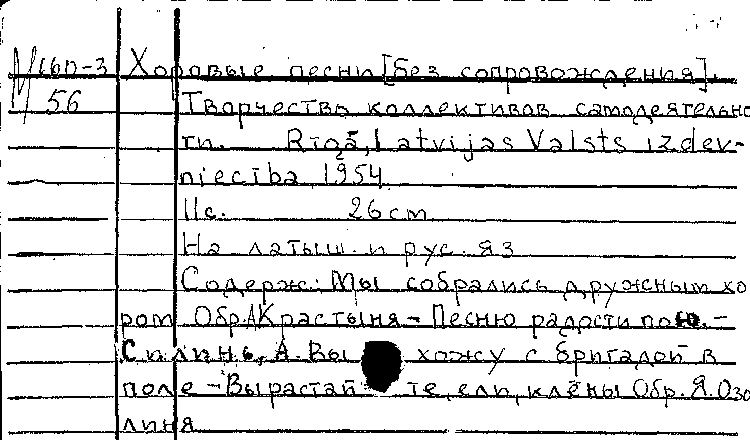 М 16п-3 Хоровые песни [без сопровождения].
56 Творчество коллективов самодеятельно
сти. Rīgā, Latvijas Valsts izdev-
niecība 1954
11с. 26cm
На латыш. и рус. яз
Содерж: Мы собрались дружным хо
ром Обр. А Крастыня - Песню радости пою. -
Силинь, А. Вы хожу с бригадой в
поле - Вырастай те, ели, клёны Обр. Я. Озо
линя